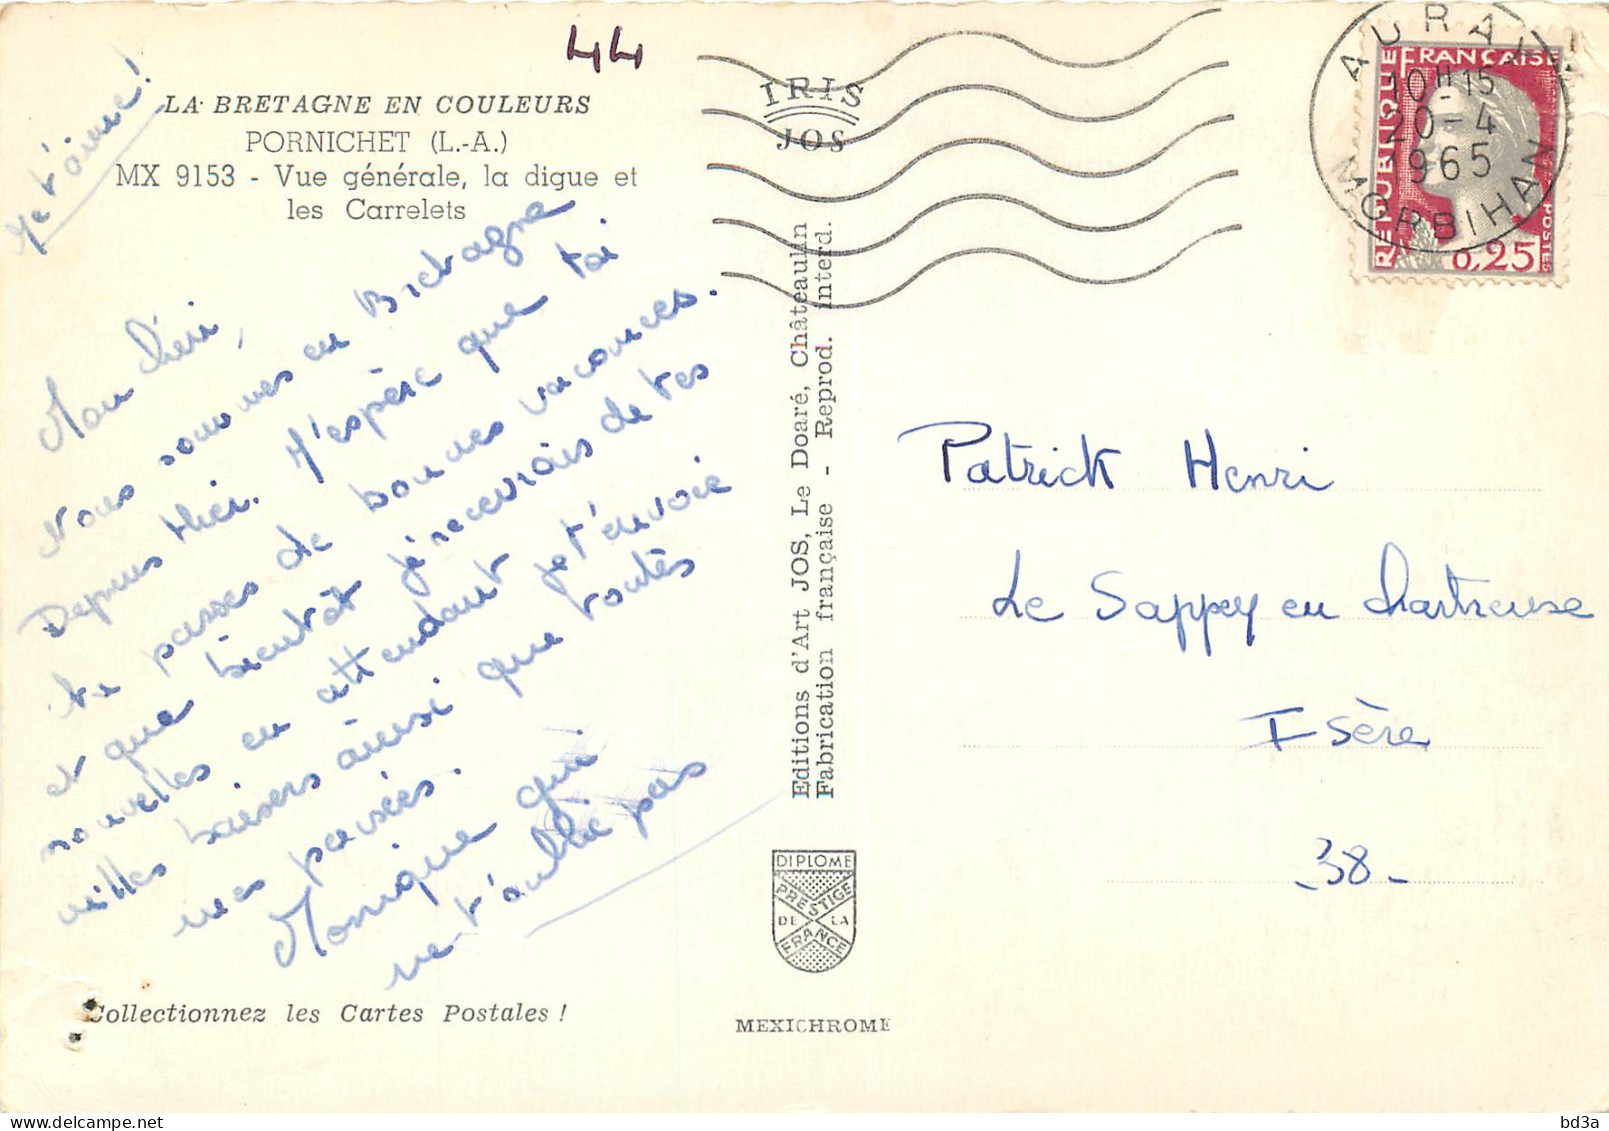 44
LA BRETAGNE EN COULEURS
PORNICHET (L.-A.)
MX 9153 - Vue générale, la digue et
les Carrelets
Je t'aime !
Mon chéri,
Nous sommes en Bretagne
Depuis hier. J'espère que toi
tu passes de bonnes vacances.
et que bientôt je recevrais de tes
nouvelles en attendant je t'envoie
milles baisers ainsi que toutes
mes pensées.
Monique qui
ne t'oublie pas
Collectionnez les Cartes Postales !
IRIS
JOS
Editions d'Art JOS, Le Doaré, Châteaulin
Fabrication française - Reprod. interd.
DIPLOME
PRESTIGE
DE LA
FRANCE
MEXICHROME
AURAY
10H15
20-4
1965
MORBIHAN
REPUBLIQUE FRANÇAISE
POSTES
0,25
Patrick Henri
Le Sappey en Chartreuse
Isère
-38-
bd3a